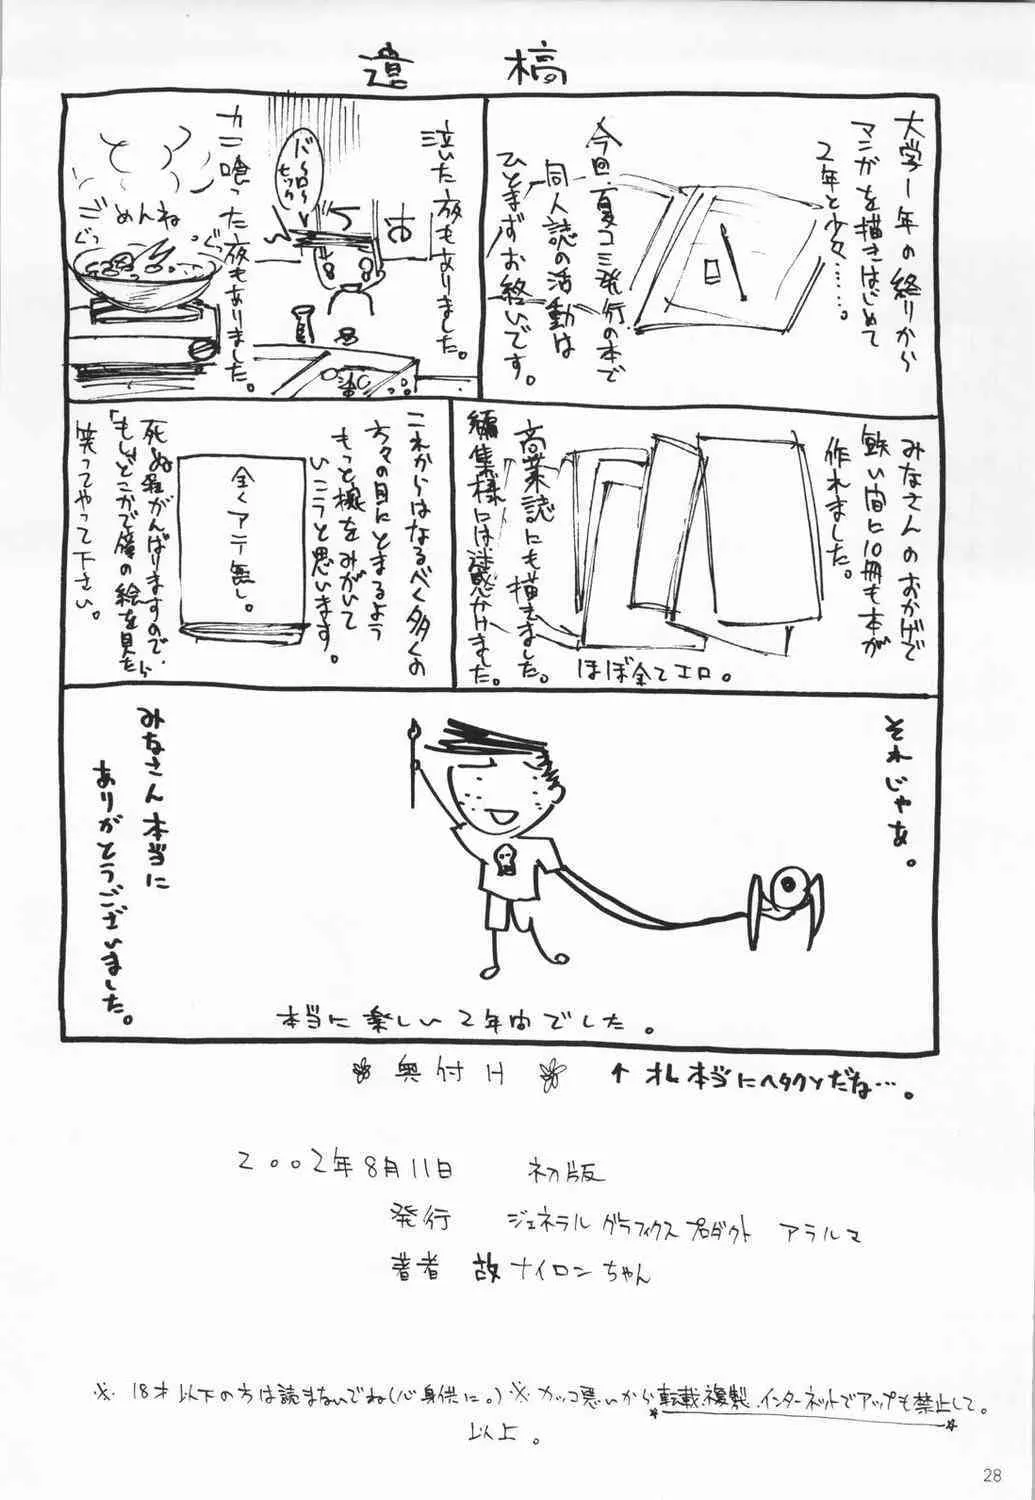 遺稿
大学1年の終りから
マンガを描きはじめて
2年と少々……。
今回、夏コミ発行の本で
同人誌の活動は
ひとまずお終いです。
泣いた夜もありました。
バーローヒック
カニ喰った夜もありました。
ごめんね
ぐっ
ぐっ
みなさんのおかげで
短い間に10冊も本が
作れました。
商業誌にも描きました。
編集様には迷惑かけました。
ほぼ全てエロ。
これからはなるべく多くの
方々の目にとまるよう
もっと腕をみがいて
いこうと思います。
全くアテ無し。
死ぬ程がんばりますので、
「もしどこかで僕の絵を見たら
笑ってやって下さい。
それじゃあ。
みなさん本当に
ありがとうございました。
本当に楽しい2年間でした。
奥付H
↑オレ本当にヘタクソだね…。
2002年8月11日 初版
発行 ジェネラルグラフィクスプロダクト アラルマ
著者 故ナイロンちゃん
※18才以下の方は読まないでね(心身供に。)※カッコ悪いから転載、複製、インターネットでアップも禁止して。
以上。
28